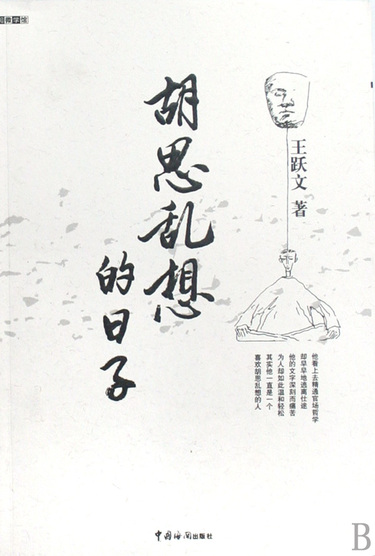 胡思乱想
的日子
王跃文 著
他看上去精通官场哲学
却早早地逃离仕途
他的文字深刻而痛苦
为人却如此温和轻松
其实他一直是一个
喜欢胡思乱想的人
中国海关出版社
B